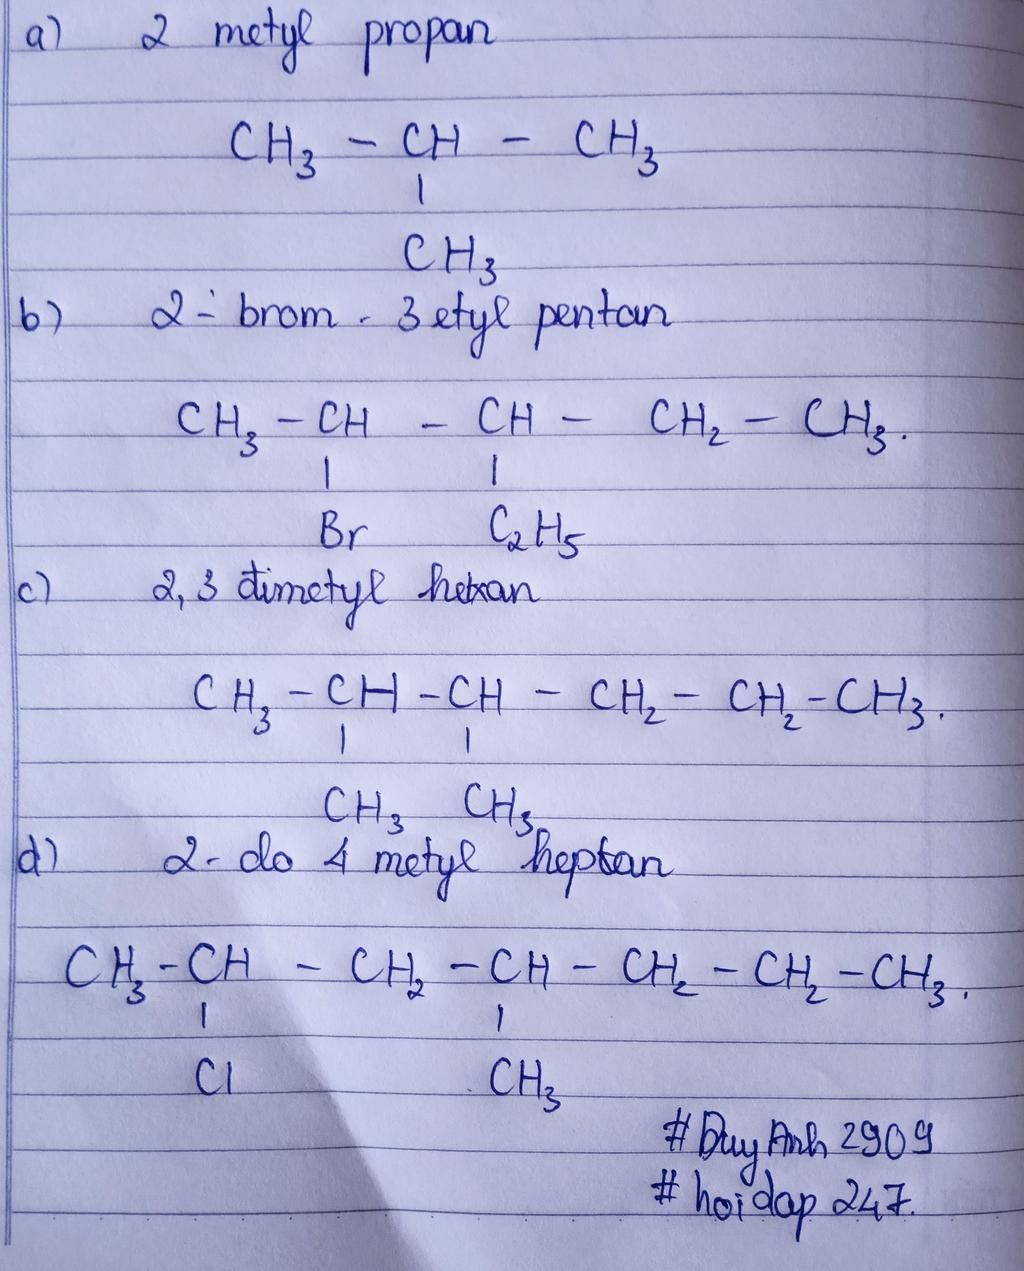 a) 2 metyl propan
CH₃ - CH - CH₃
|
CH₃
b) 2- brom - 3 etyl pentan
CH₃ - CH - CH - CH₂ - CH₃.
| |
Br C₂H₅
c) 2,3 đimetyl hexan
CH₃ - CH - CH - CH₂ - CH₂ - CH₃.
| |
CH₃ CH₃
d) 2- clo 4 metyl heptan
CH₃ - CH - CH₂ - CH - CH₂ - CH₂ - CH₃.
| |
Cl CH₃
# Duy Anh 2909
# hoidap 247.